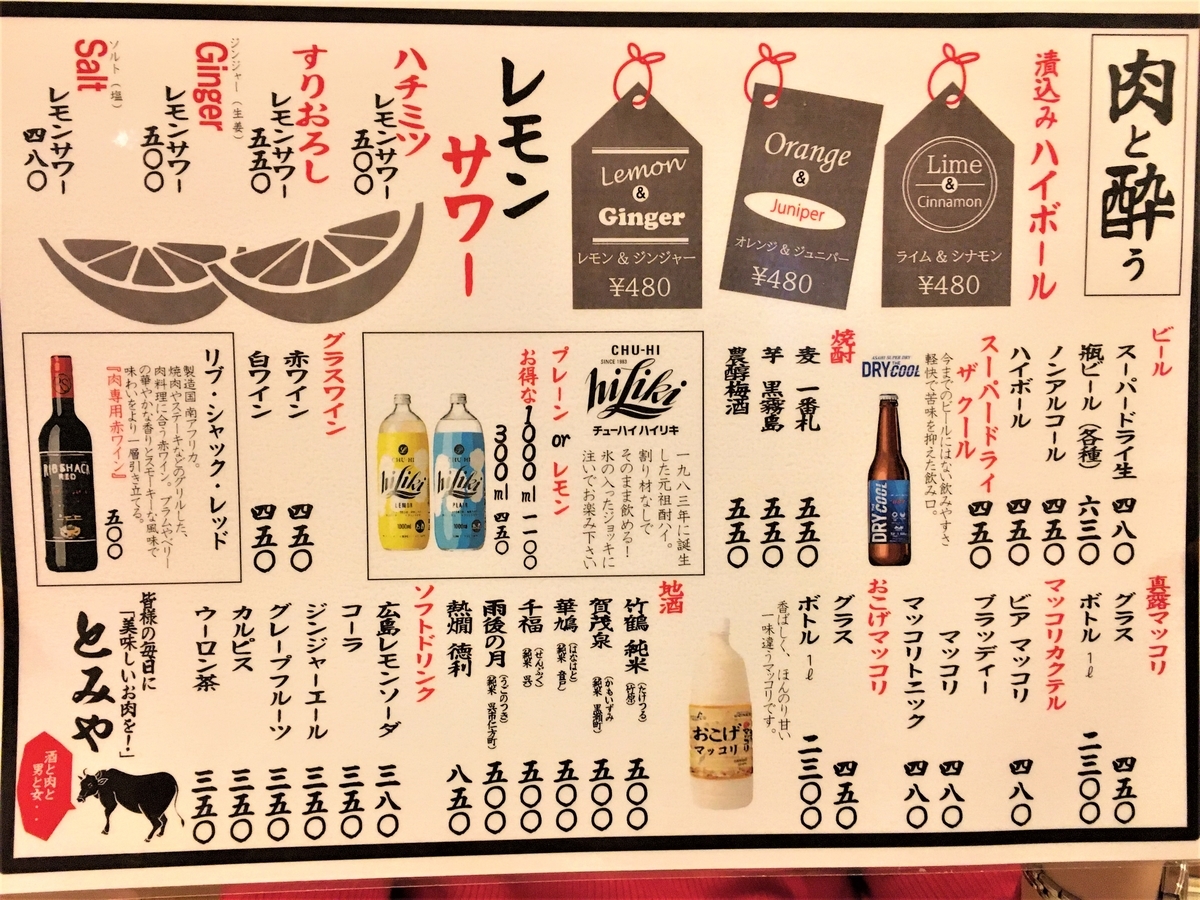 肉と酔う
漬込み ハイボール
Lime
&
Cinnamon
ライム & シナモン
¥480
Orange
&
Juniper
オレンジ & ジュニパー
¥480
Lemon
&
Ginger
レモン & ジンジャー
¥480
レモン
サワー
ハチミツ
レモンサワー
五〇〇
すりおろし
レモンサワー
五五〇
ジンジャー(生姜)
Ginger
レモンサワー
五〇〇
ソルト(塩)
Salt
レモンサワー
四八〇
ビール
スーパードライ生 四八〇
瓶ビール(各種) 六三〇
ノンアルコール 四五〇
ハイボール 四五〇
スーパードライ
ザ クール 四五〇
今までのビールにはない飲みやすさ
軽快で苦味を抑えた飲み口。
ASAHI SUPER DRY
THE
DRY COOL
DRY COOL
焼酎
麦 一番札 五五〇
芋 黒霧島 五五〇
農醇梅酒 五五〇
CHU-HI
SINCE 1983
hiLiki
チューハイ ハイリキ
一九八三年に誕生
した元祖酎ハイ。
割り材なしで
そのまま飲める!
氷の入ったジョッキに
注いでお楽み下さい
プレーン or レモン
お得な1000ml 一一〇〇
300ml 四五〇
CHU-HI
hiLiki
LEMON
1000ml
CHU-HI
hiLiki
PLAIN
1000ml
グラスワイン
赤ワイン 四五〇
白ワイン 四五〇
リブ・シャック・レッド
製造国 南アフリカ。
焼肉やステーキなどのグリルした、
肉料理に合う赤ワイン。プラムやベリー
の華やかな香りとスモーキーな風味で
味わいをより一層引き立てる。
『肉専用赤ワイン』
五〇〇
RIB SHACK
RED
真露マッコリ
グラス 四五〇
ボトル 1ℓ 二三〇〇
マッコリカクテル
ビア マッコリ 四八〇
ブラッディー
マッコリ 四八〇
マッコリトニック 四八〇
おこげマッコリ
グラス 四五〇
ボトル 1ℓ 二三〇〇
香ばしく、ほんのり甘い
一味違うマッコリです。
おこげ
マッコリ
地酒
竹鶴 純米 (たけつる)(竹原) 五〇〇
賀茂泉 (かもいずみ)(純米 黒瀬町) 五〇〇
華鳩 (はなはと)(純米 音戸) 五〇〇
千福 (せんぷく)(純米 呉) 五〇〇
雨後の月 (うごのつき)(純米 呉市仁方町) 五〇〇
熱燗 徳利 八五〇
ソフトドリンク
広島レモンソーダ 三八〇
コーラ 三五〇
ジンジャーエール 三五〇
グレープフルーツ 三五〇
カルピス 三五〇
ウーロン茶 三五〇
皆様の毎日に
「美味しいお肉を!」
とみや
酒と肉と
男と女・・